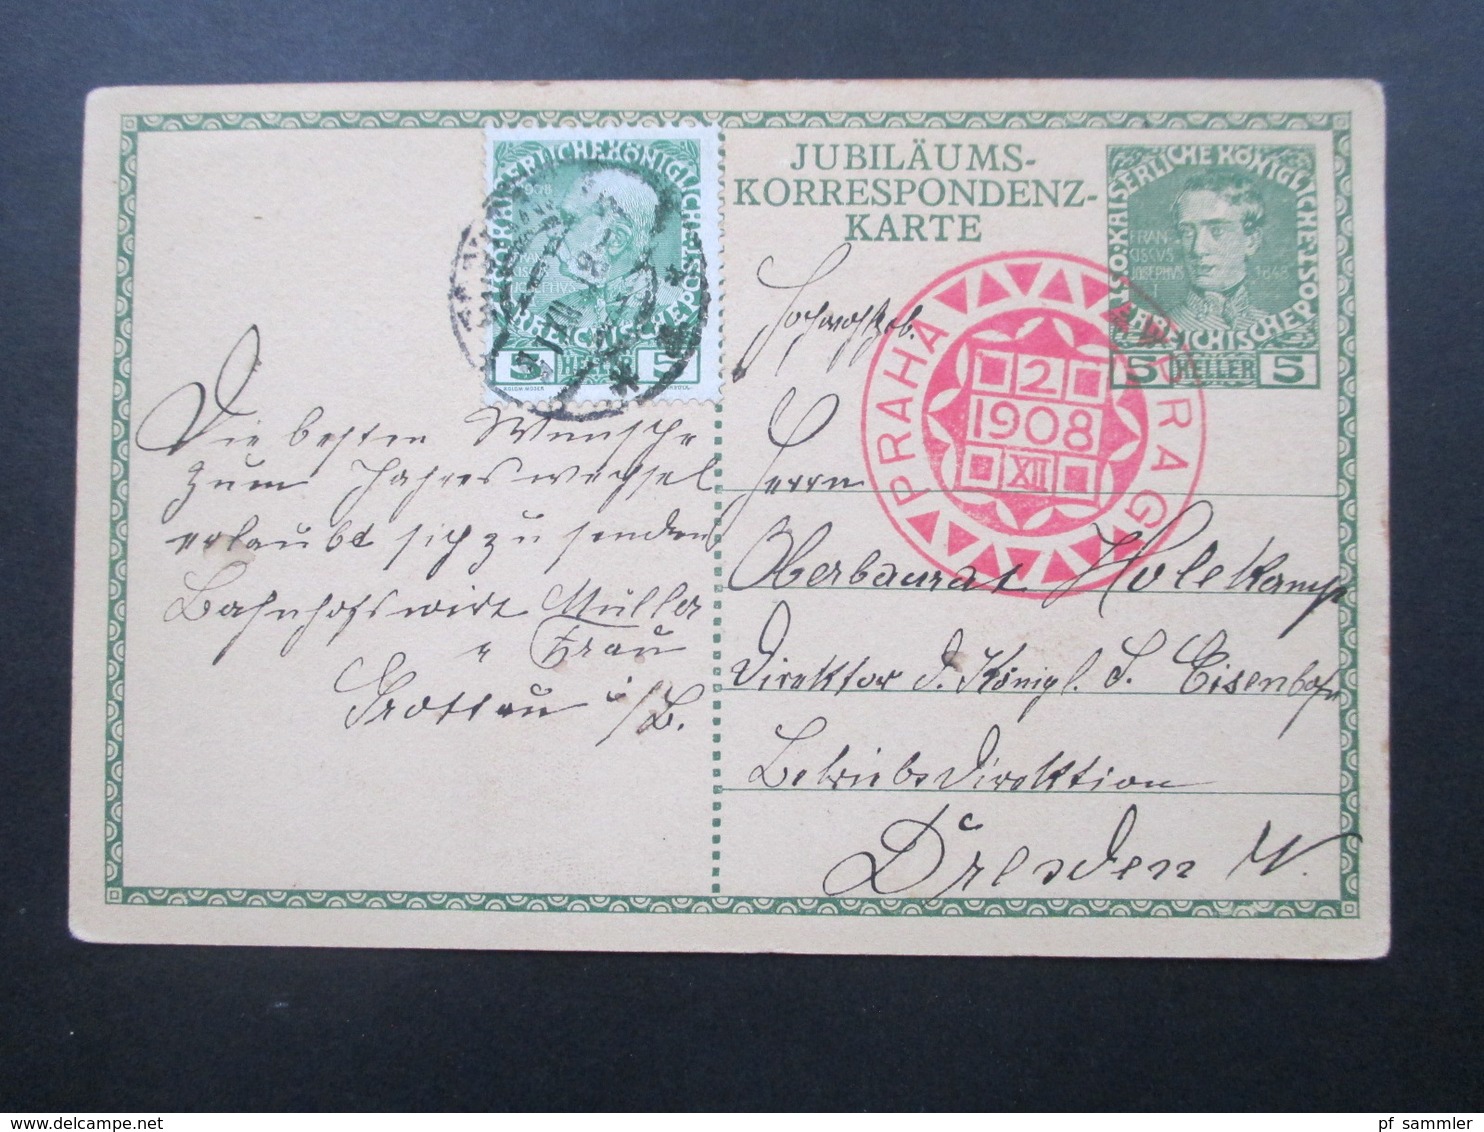 JUBILÄUMS-
KORRESPONDENZ-
KARTE
KAISERLICHE KÖNIGLICHE ÖSTERREICHISCHE POST
1908
5 HELLER 5
KAISERLICHE KÖNIGLICHE ÖSTERREICHISCHE POST
FRAN-
CISCVS
IOSEPHVS
I
1848
5 HELLER 5
PRAHA PRAG
2
1908
XII
Die besten Wünsche
zum Jahreswechsel
erlaubt sich zu senden
Bahnhofswirt Müller
" Frau
Grottau i/B.
Hochwohlgeb.
Herrn
Oberbaurat Holekamp
Direktor d. Königl. S. Eisenbahn
Betriebsdirektion
Dresden W.
pf_sammler